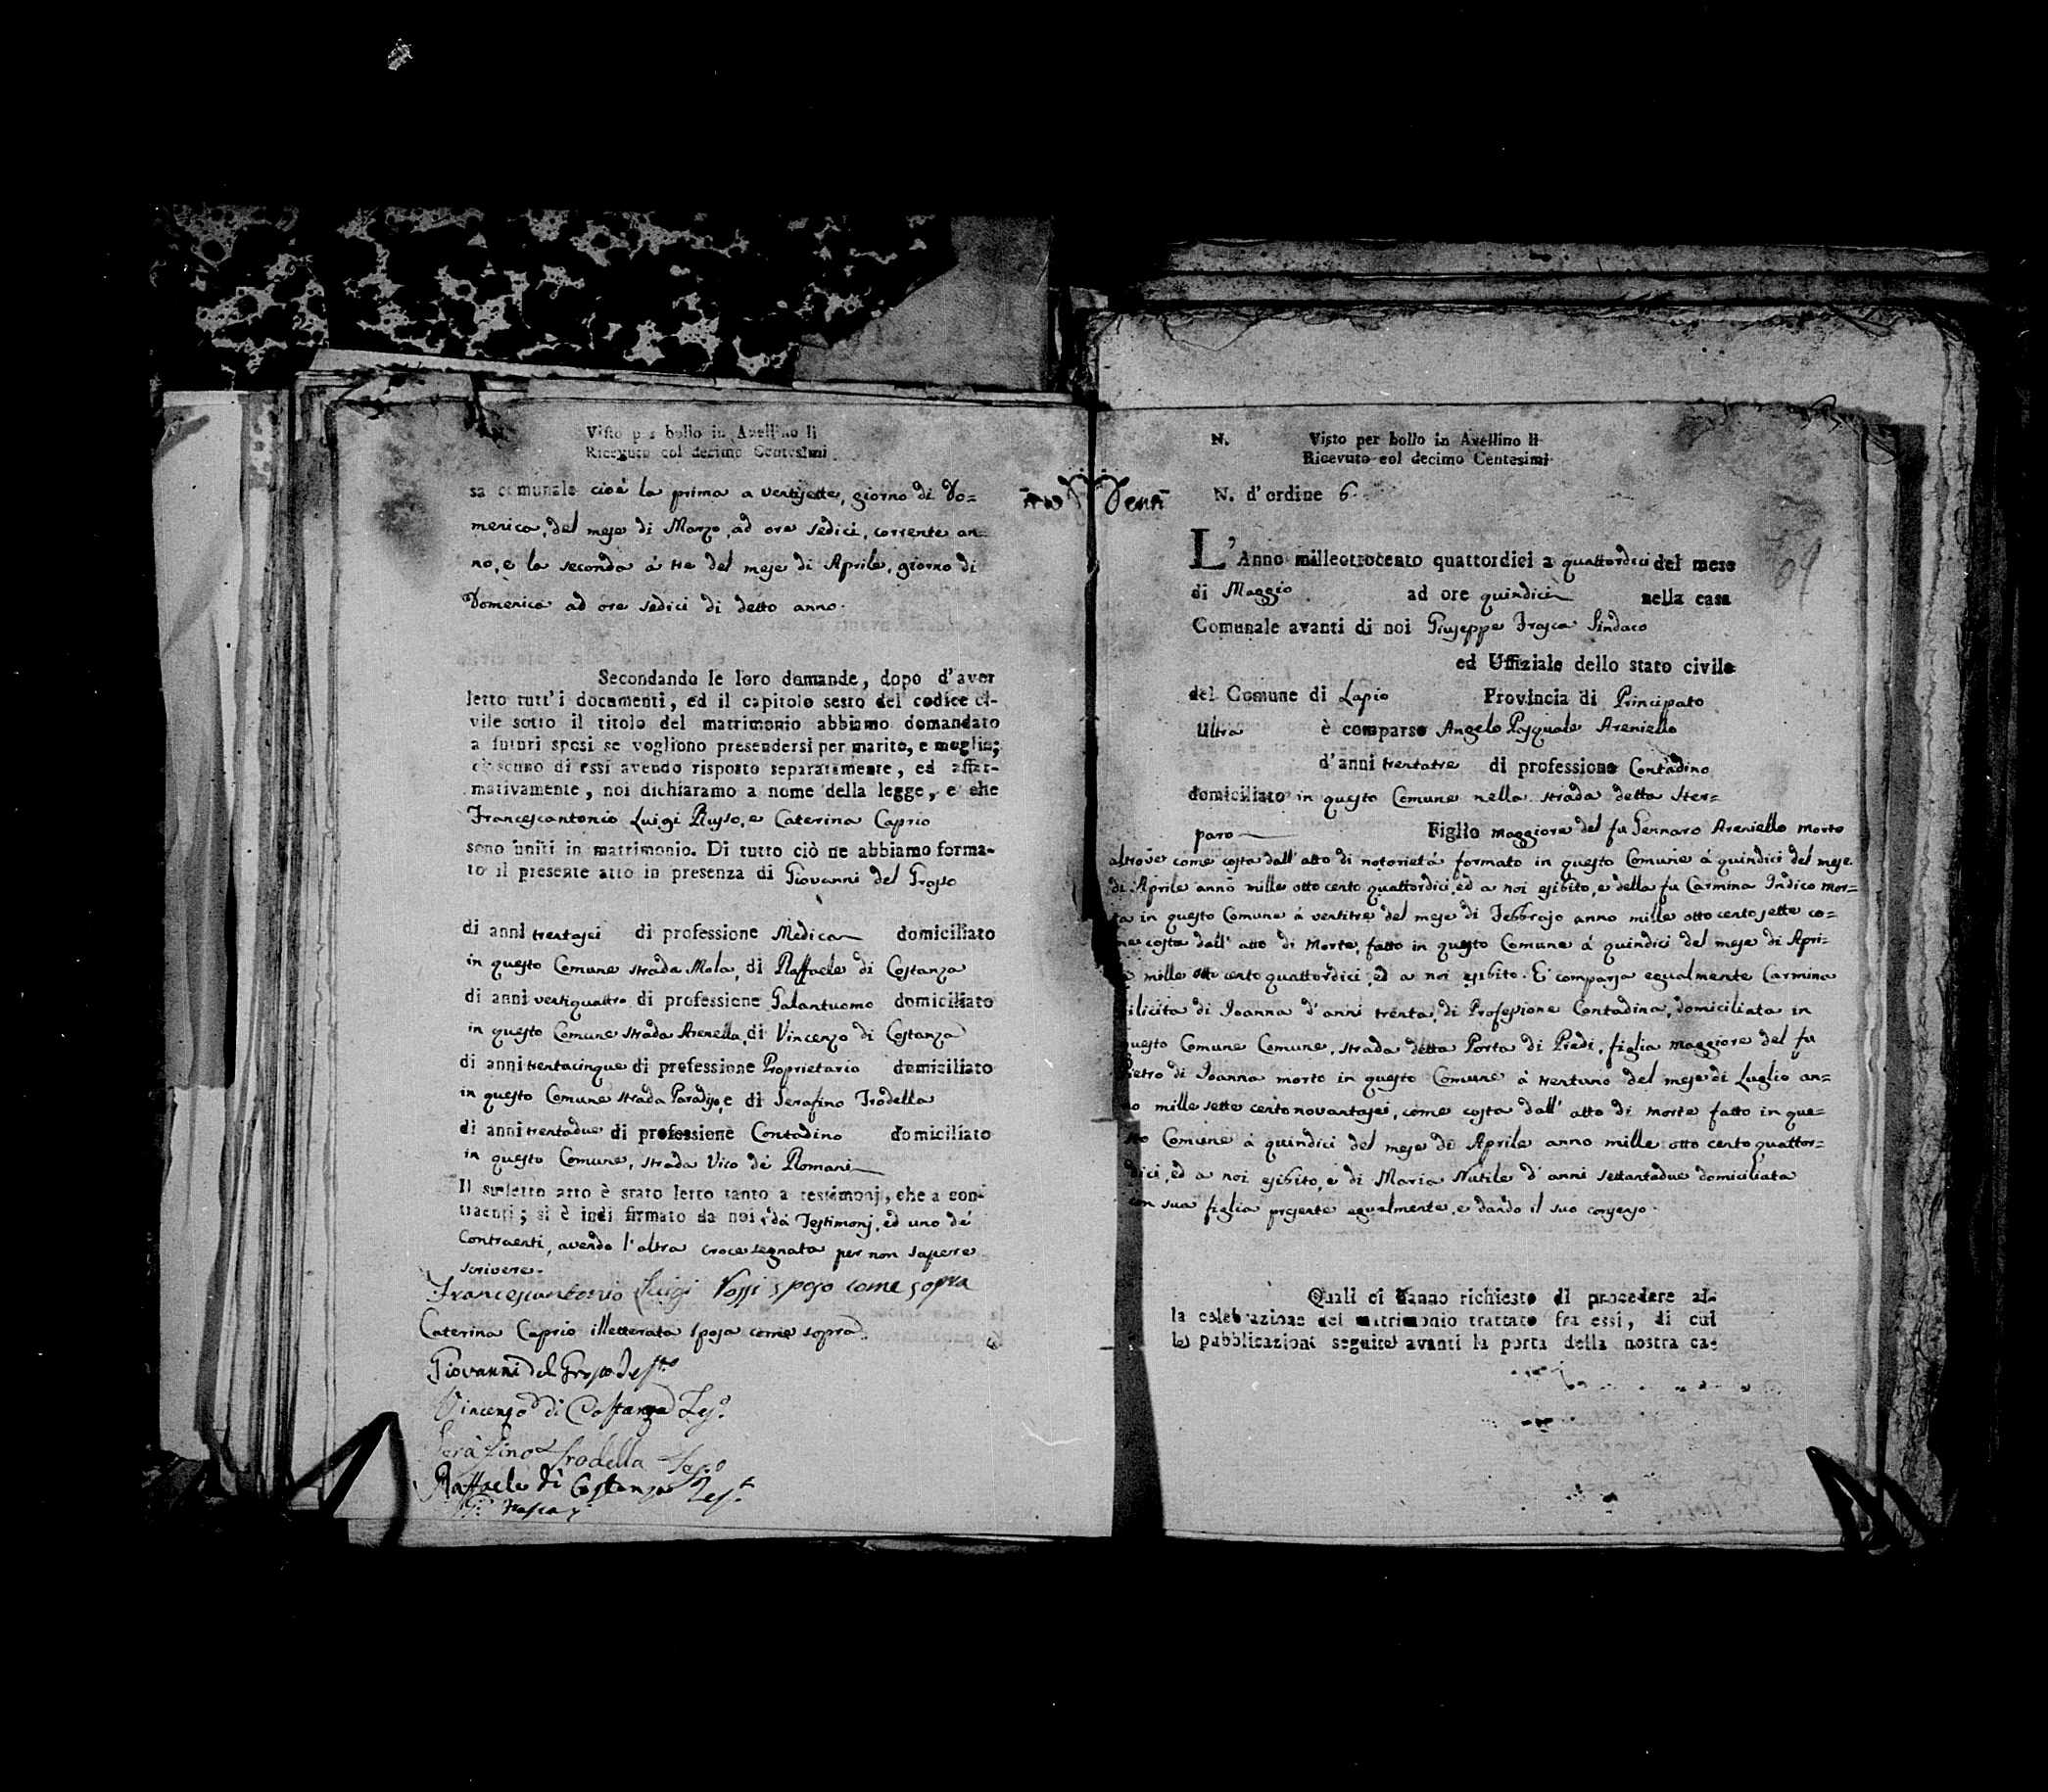 Visto per bollo in Avellino li
Ricevuto col decimo Centesimi
sa comunale cioè la prima a ventisette, giorno di Do=
menica, del mese di Marzo, ad ore sedici, corrente an=
no, e la seconda à tre del mese di Aprile, giorno di
Domenica ad ore sedici di detto anno.
Secondando le loro domande, dopo d'aver
letto tutt'i documenti, ed il capitolo sesto del codice ci-
vile sotto il titolo del matrimonio abbiamo domandato
a futuri sposi se vogliono presendersi per marito, e moglie;
ciascuno di essi avendo risposto separatamente, ed affer-
mativamente, noi dichiaramo a nome della legge, e che
Francescantonio Luigi Russo, e Caterina Caprio
sono uniti in matrimonio. Di tutto ciò ne abbiamo forma-
to il presente atto in presenza di Giovanni del Grosso
di anni trentasei di professione Medico domiciliato
in questo Comune strada Mola, di Raffaele di Costanza
di anni ventiquattro di professione Galantuomo domiciliato
in questo Comune strada Arenella, di Vincenzo di Costanza
di anni trentacinque di professione Proprietario domiciliato
in questo Comune strada Paradiso, e di Serafino Trodella
di anni trentadue di professione Contadino domiciliato
in questo Comune, strada Vico de' Romani
Il sudetto atto è stato letto tanto a testimonj, che a con-
traenti; si è indi firmato da noi, da' Testimonj, ed uno de'
Contraenti, avendo l'altra croce segnata per non sapere
scrivere.
Francescantonio Luigi Rossi sposo come sopra
Caterina Caprio illetterata sposa come sopra
Giovanni del Grosso Testo
Vincenzo di Costanza Teso.
Serafino Trodella
Raffaele di Costanza Test.
N. Visto per bollo in Avellino li
Ricevuto col decimo Centesimi
N. d'ordine 6.
L'Anno milleottocento quattordici a quattordici del mese
di Maggio ad ore quindici nella casa
Comunale avanti di noi Giuseppe Frasca Sindaco
ed Uffiziale dello stato civile
del Comune di Lapio Provincia di Principato
Ultra è comparso Angelo Pasquale Areniello
d'anni trentatre di professione Contadino
domiciliato in questo Comune nella strada detta Ster=
paro Figlio maggiore del fu Gennaro Areniello morto
altrove come costa dall'atto di notorietà formato in questo Comune à quindici del mese
di Aprile anno mille otto cento quattordici, ed a noi esibito, e della fu Carmina Indico mor=
ta in questo Comune à ventitre del mese di Febbrajo anno mille otto cento sette co=
me costa dall'atto di Morte, fatto in questo Comune à quindici del mese di Apri=
mille otto cento quattordici, ed a noi esibito. E' comparsa egualmente Carmina
di Joanna d'anni trenta, di Professione Contadina, domiciliata in
questo Comune Comune, strada detta Porta di Piedi, figlia maggiore del fu
Pietro di Joanna morto in questo Comune à trentuno del mese di Luglio an=
no mille sette cento novantasei, come costa dall'atto di morte fatto in que=
sto Comune à quindici del mese di Aprile anno mille otto cento quattor=
dici, ed a noi esibito, e di Maria Nutile d'anni settantadue domiciliata
con sua figlia presente egualmente, e dando il suo consenso.
Quali ci hanno richiesto di procedere al-
la celebrazione del matrimonio trattato fra essi, di cui
le pubblicazioni seguite avanti la porta della nostra ca-